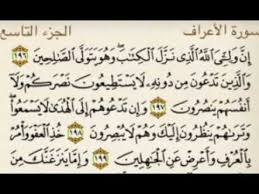 سورة الأعراف الجزء التاسع
إِنَّ وَلِـِّۧيَ ٱللَّهُ ٱلَّذِى نَزَّلَ ٱلْكِتَٰبَ ۖ وَهُوَ يَتَوَلَّى ٱلصَّٰلِحِينَ ١٩٦
وَٱلَّذِينَ تَدْعُونَ مِن دُونِهِۦ لَا يَسْتَطِيعُونَ نَصْرَكُمْ وَلَآ
أَنفُسَهُمْ يَنصُرُونَ ١٩٧ وَإِن تَدْعُوهُمْ إِلَى ٱلْهُدَىٰ لَا يَسْمَعُوا۟ ۖ
وَتَرَىٰهُمْ يَنظُرُونَ إِلَيْكَ وَهُمْ لَا يُبْصِرُونَ ١٩٨ خُذِ ٱلْعَفْوَ وَأْمُرْ
بِٱلْعُرْفِ وَأَعْرِضْ عَنِ ٱلْجَٰهِلِينَ ١٩٩ وَإِمَّا يَنزَغَنَّكَ مِنَ